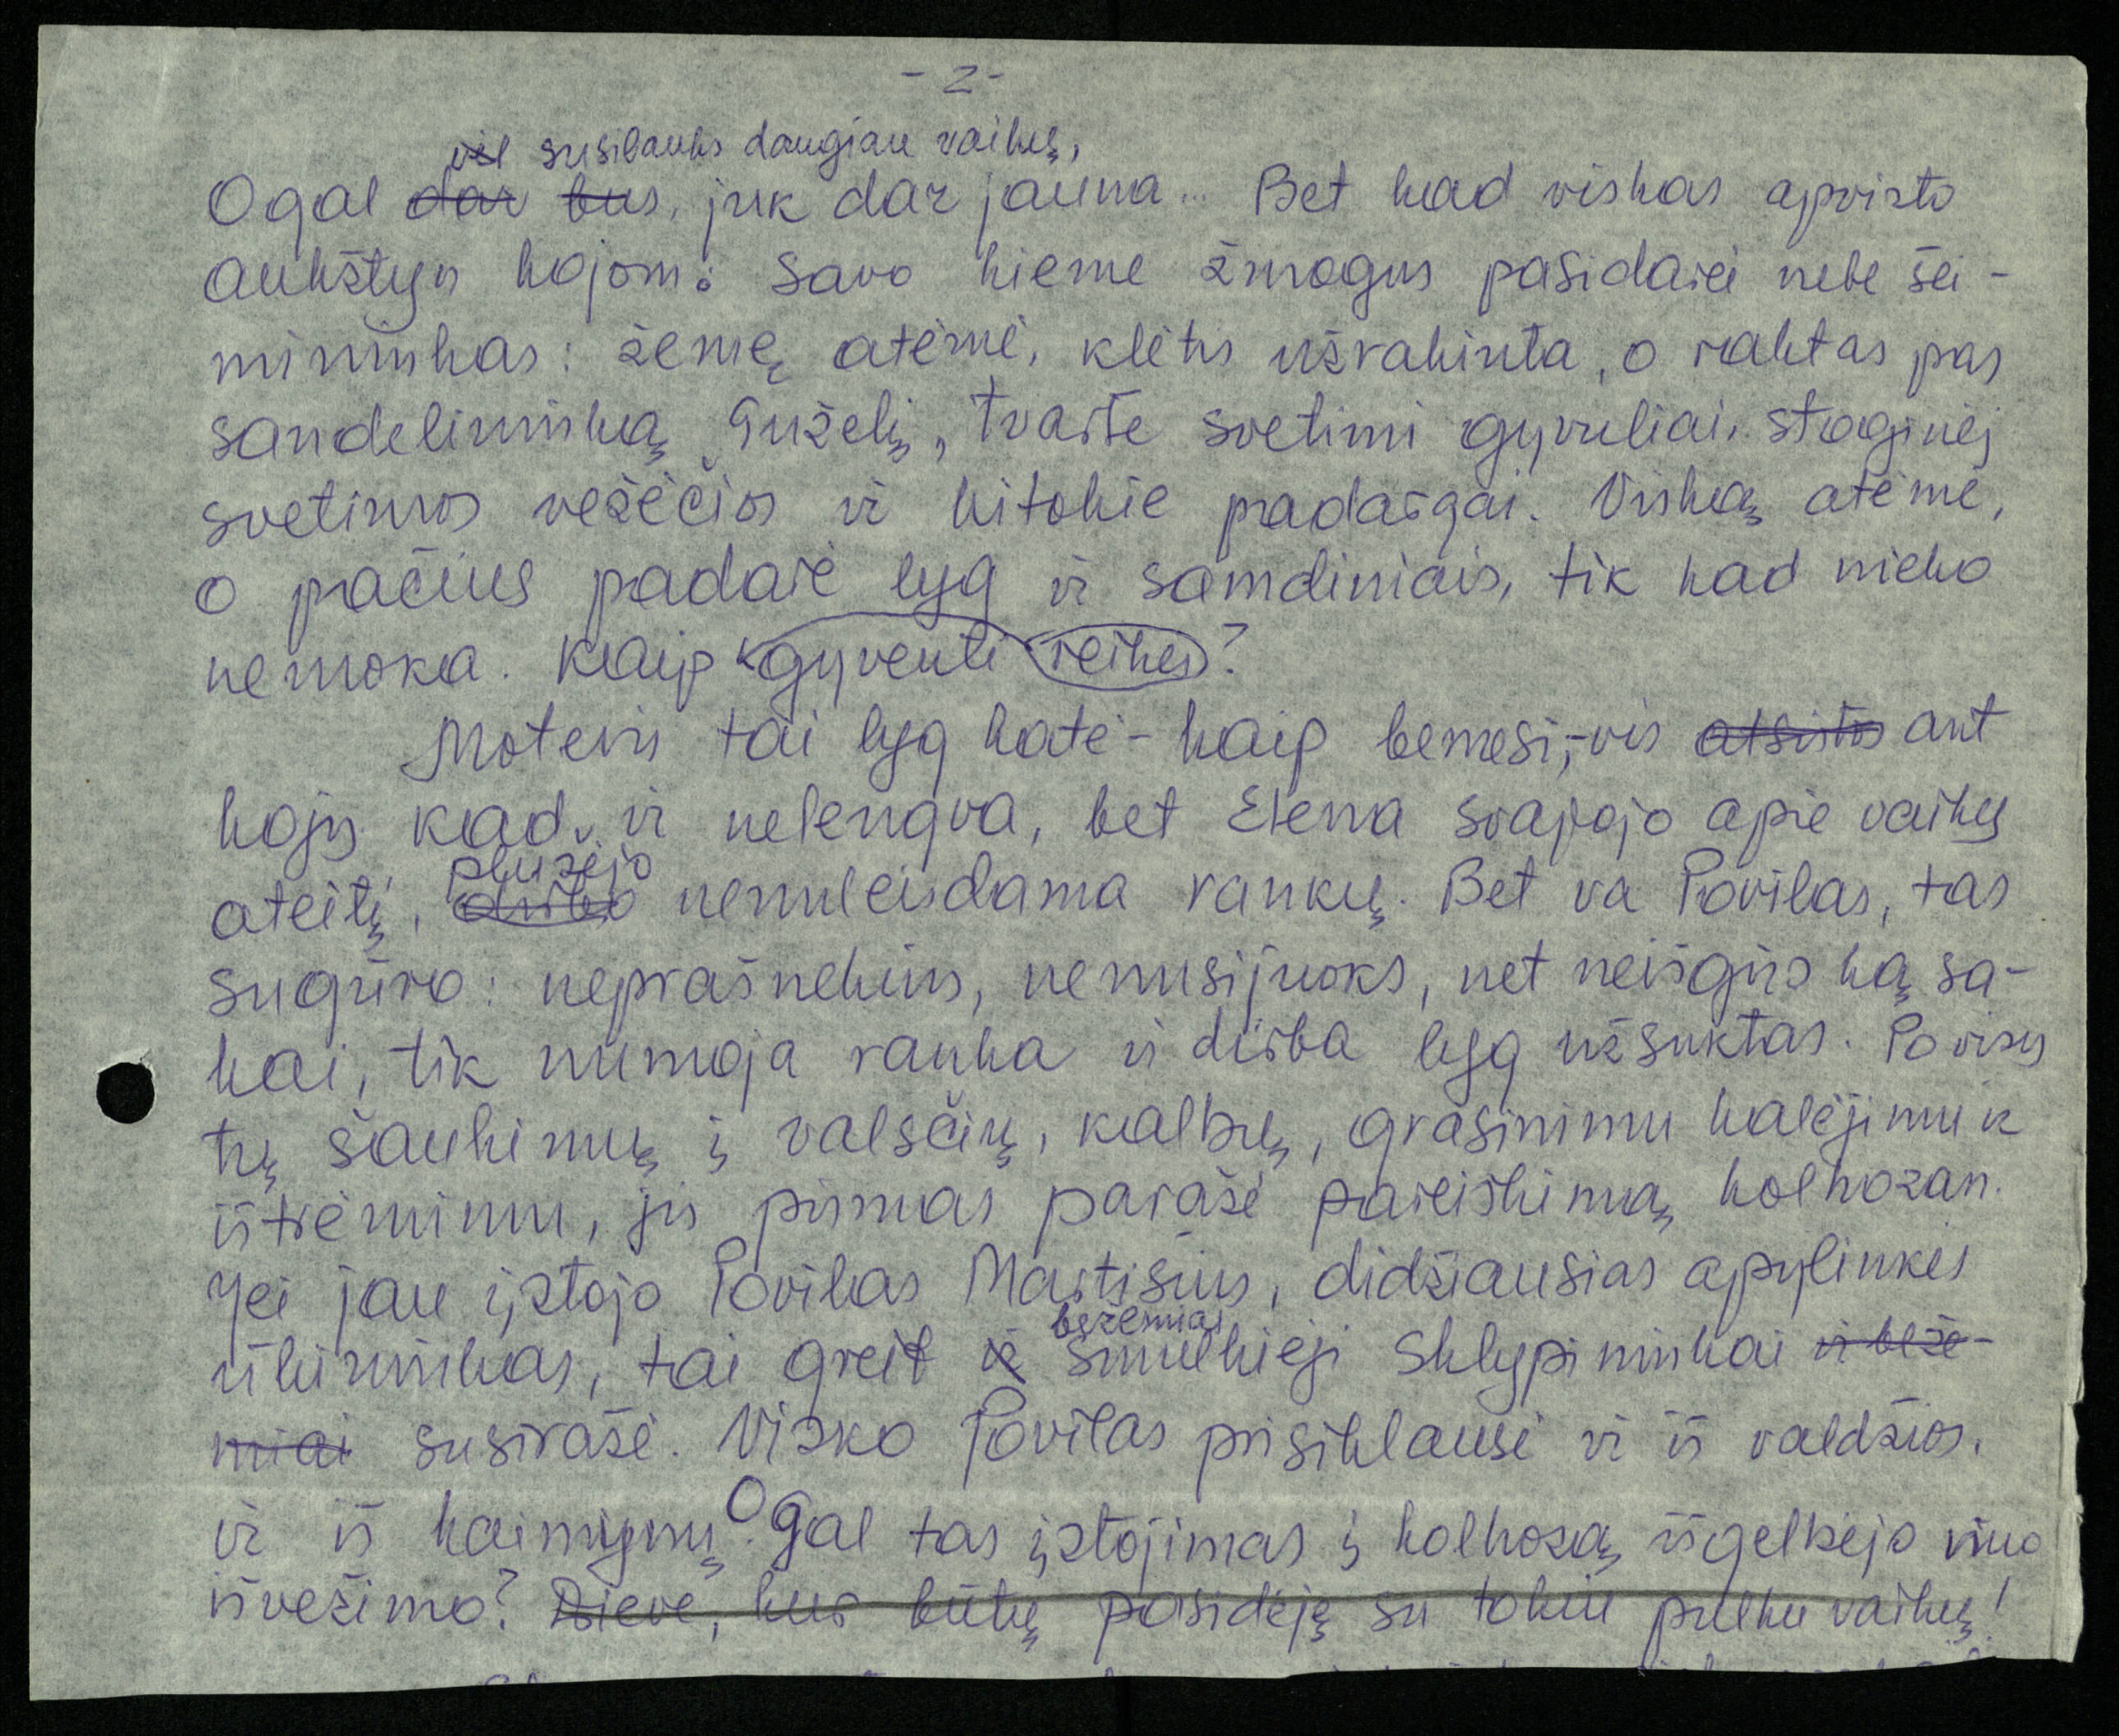 - 2 -
vėl susilauks daugiau vaikų,
O gal dar bus, juk dar jauna... Bet kad viskas apvirto
aukštyn kojom: savo kieme žmogus pasidarei nebe šei-
mininkas: žemę atėmė, klėtis užrakinta, o raktas pas
sandelininką Guželį, tvarte svetimi gyvuliai, stoginėj
svetimos vežėčios ir kitokie padargai. Viską atėmė,
o pačius padarė lyg ir samdiniais, tik kad nieko
nemoka. Kaip gyventi reikės?
Moteris tai lyg katė - kaip bemesi, - vis atsistos ant
kojų. Kad ir nelengva, bet Elena svajojo apie vaikų
plušėjo
ateitį, dirbo nenuleisdama rankų. Bet va Povilas, tas
sugūro: neprašnekins, nenusijuoks, net neišgirs ką sa-
kai, tik numoja ranka ir dirba lyg užsuktas. Po visų
tų šaukimų į valsčių, kalbų, grasinimu kalėjimu ir
ištrėmimu, jis pirmas parašė pareiškimą kolhozan.
Jei jau įstojo Povilas Martišius, didžiausias apylinkės
bežemiai
ūkininkas, tai greit ir smulkieji sklypininkai ir beže-
miai susirašė. Visko Povilas prisiklausė ir iš valdžios,
ir iš kaimynų. O gal tas įstojimas į kolhozą išgelbėjo nuo
išvežimo? Dieve, kur būtų pasidėję su tokiu pulku vaikų!